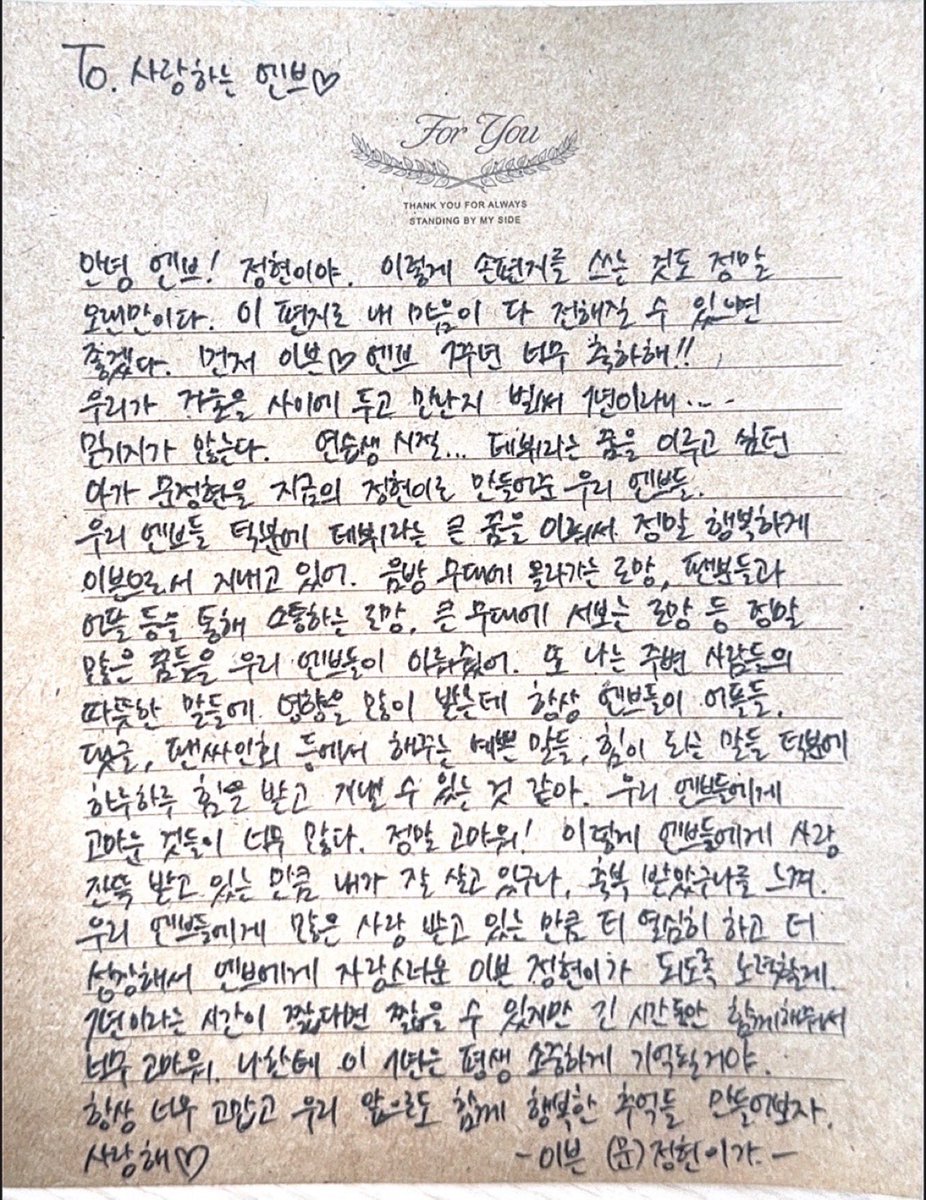 To. 사랑하는 엔브♡
For You
THANK YOU FOR ALWAYS
STANDING BY MY SIDE
안녕 엔브! 정현이야. 이렇게 손편지를 쓰는 것도 정말
오랜만이다. 이 편지로 내 마음이 다 전해질 수 있으면
좋겠다. 먼저 이븐♡엔브 1주년 너무 축하해!!
우리가 거울을 사이에 두고 만난지 벌써 1년이라니...
믿기지가 않는다. 연습생 시절... 데뷔라는 꿈을 이루고 싶던
아가 문정현을 지금의 정현이로 만들어준 우리 엔브들.
우리 엔브들 덕분에 데뷔라는 큰 꿈을 이뤄서 정말 행복하게
이븐으로서 지내고 있어. 음방 무대에 올라가는 로망, 팬분들과
어플 등을 통해 소통하는 로망, 큰 무대에 서보는 로망 등 정말
많은 꿈들을 우리 엔브들이 이뤄줬어. 또 나는 주변 사람들의
따뜻한 말들에 영향을 많이 받는데 항상 엔브들이 어플들,
댓글, 팬싸인회 등에서 해주는 예쁜 말들, 힘이 되는 말들 덕분에
하루하루 힘을 받고 지낼 수 있는 것 같아. 우리 엔브들에게
고마운 것들이 너무 많다. 정말 고마워! 이렇게 엔브들에게 사랑
잔뜩 받고 있는 만큼 내가 잘 살고 있구나, 축복 받았구나를 느껴.
우리 엔브들에게 많은 사랑 받고 있는 만큼 더 열심히 하고 더
성장해서 엔브에게 자랑스러운 이븐 정현이가 되도록 노력할게.
1년이라는 시간이 짧다면 짧을 수 있지만 긴 시간동안 함께해줘서
너무 고마워. 나한테 이 1년은 평생 소중하게 기억될거야.
항상 너무 고맙고 우리 앞으로도 함께 행복한 추억들 만들어보자.
사랑해♡ -이븐 (문)정현이가-